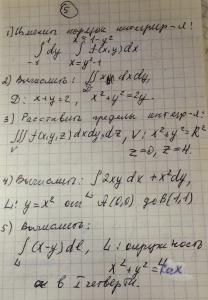 5
1) Изменить порядок интегрир-я:
∫₋₁¹ dy ∫ₓ₌y²₋₁^x=1-y² f(x,y)dx
2) Вычислить: ∬ xy dxdy,
D: x+y=2, x²+y²=2y.
3) Расставить пределы интегр-я:
∭ f(x,y,z) dxdydz, V: x²+y²=R²
V
z=0, z=H.
4) Вычислить: ∫ 2xy dx + x²dy,
L
L: y=x² от A(0,0) до B(1,1)
5) Вычислить:
∫ (x-y)dl, L: окружность
L
x²+y²=ax
в I четверти.